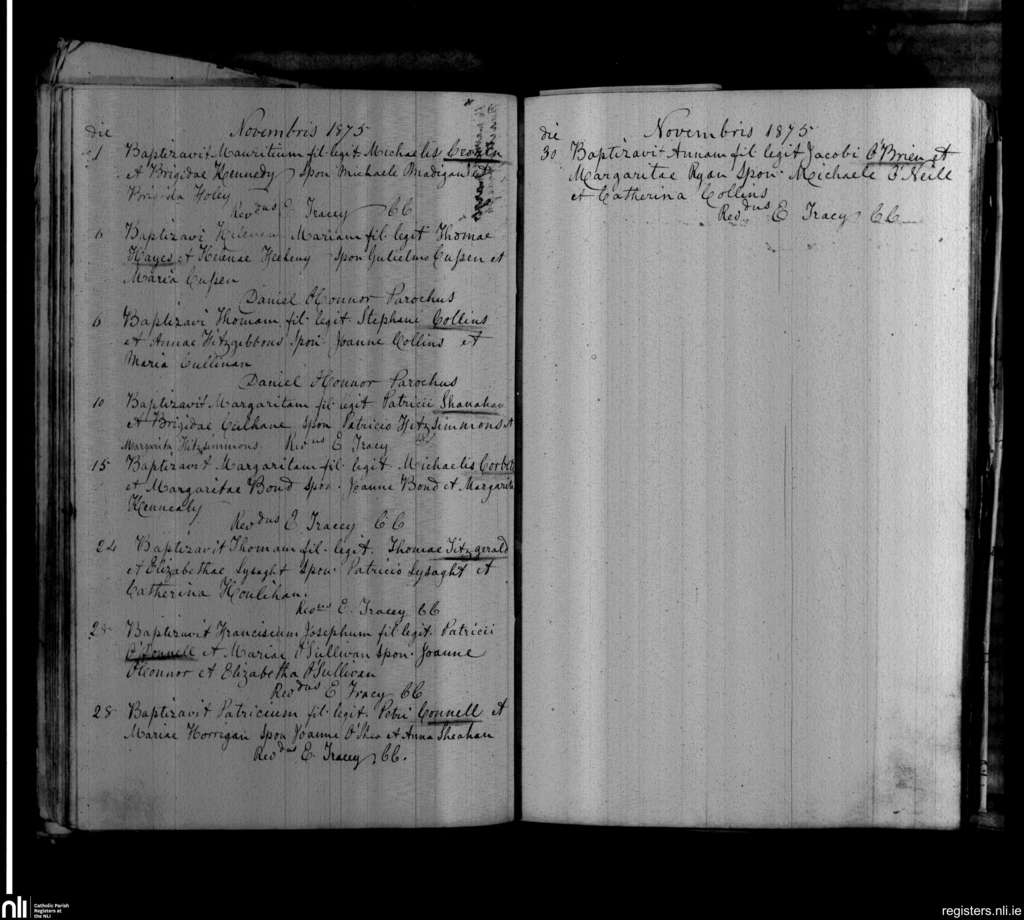 die Novembris 1875
1 Baptizavit Mauritium fil legit Michaelis Cronin
et Brigidae Kennedy Spon Michaele Madigan et
Brigida Foley
Rev dus E Tracey CC
6 Baptizavi Mariam fil legit Thomae
Hayes et Helenae Spon Gulielmo Cussen et
Maria Cussen
Daniel O'Connor Parochus
6 Baptizavi Thomam fil legit Stephani Collins
et Annae Fitzgibbons Spon Joanne Collins et
Maria Cullinan
Daniel O'Connor Parochus
10 Baptizavit Margaritam fil legit Patricii Shanahan
et Brigidae Culhane spon Patricio Fitzsimmons et
Margarita Fitzsimmons. Rev dus E Tracy CC
15 Baptizavit Margaritam fil legit Michaelis Corbet
et Margaritae Bond spon Joanne Bond et Margarita
Kennealy
Rev dus E Tracey CC
24 Baptizavit Thomam fil legit. Thomae Fitzgerald
et Elizabethae Lysaght Spon Patricio Lysaght et
Catherina Houlihan.
Rev dus E. Tracey CC
28 Baptizavit Franciscum Josephum fil legit. Patricii
O'Donnell et Mariae O'Sullivan spon Joanne
O'Connor et Elizabetha O'Sullivan
Rev dus E Tracy CC
28 Baptizavit Patricium fil legit. Petri Connell et
Mariae Horrigan Spon Joanne O'Shea et Anna Sheahan
Rev dus E. Tracey CC.
die Novembris 1875
30 Baptizavit Annam fil legit Jacobi O'Brien et
Margaritae Ryan Spon Michaele O'Neill
et Catherina Collins
Rev dus E Tracy CC
nli
Catholic Parish
Registers at
the NLI
registers.nli.ie